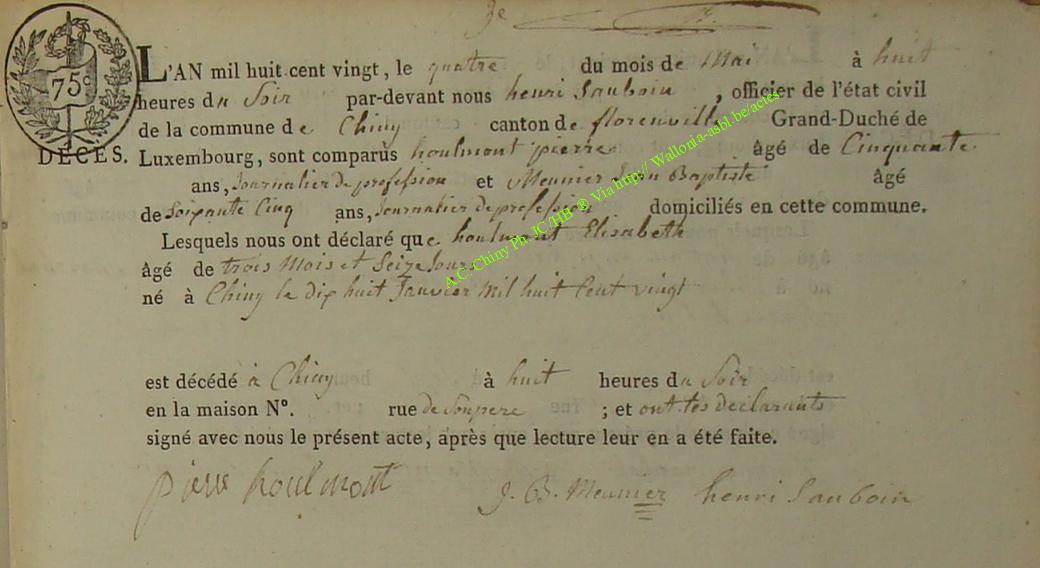 3e
75c
L'AN mil huit cent vingt, le quatre du mois de Mai à huit
heures du Soir par-devant nous henri Sauboin, officier de l'état civil
de la commune de Chiny canton de florenville Grand-Duché de
DÉCÈS. Luxembourg, sont comparus houlmont pierre âgé de Cinquante
ans, Journalier de profession et Meunier Jean Baptiste âgé
de Soixante Cinq ans, Journalier de profession domiciliés en cette commune.
Lesquels nous ont déclaré que houlmont Elisabeth
âgé de trois Mois et Seize Jours
né à Chiny le dix huit Janvier Mil huit Cent vingt
est décédé à Chiny à huit heures du Soir
en la maison N°. rue de Soupere ; et ont les declarants
signé avec nous le présent acte, après que lecture leur en a été faite.
pierre houlmont J. B. Meunier henri Sauboin
A.C. Chiny Ph JC/HB ® Via http://Wallonia-asbl.be/actes